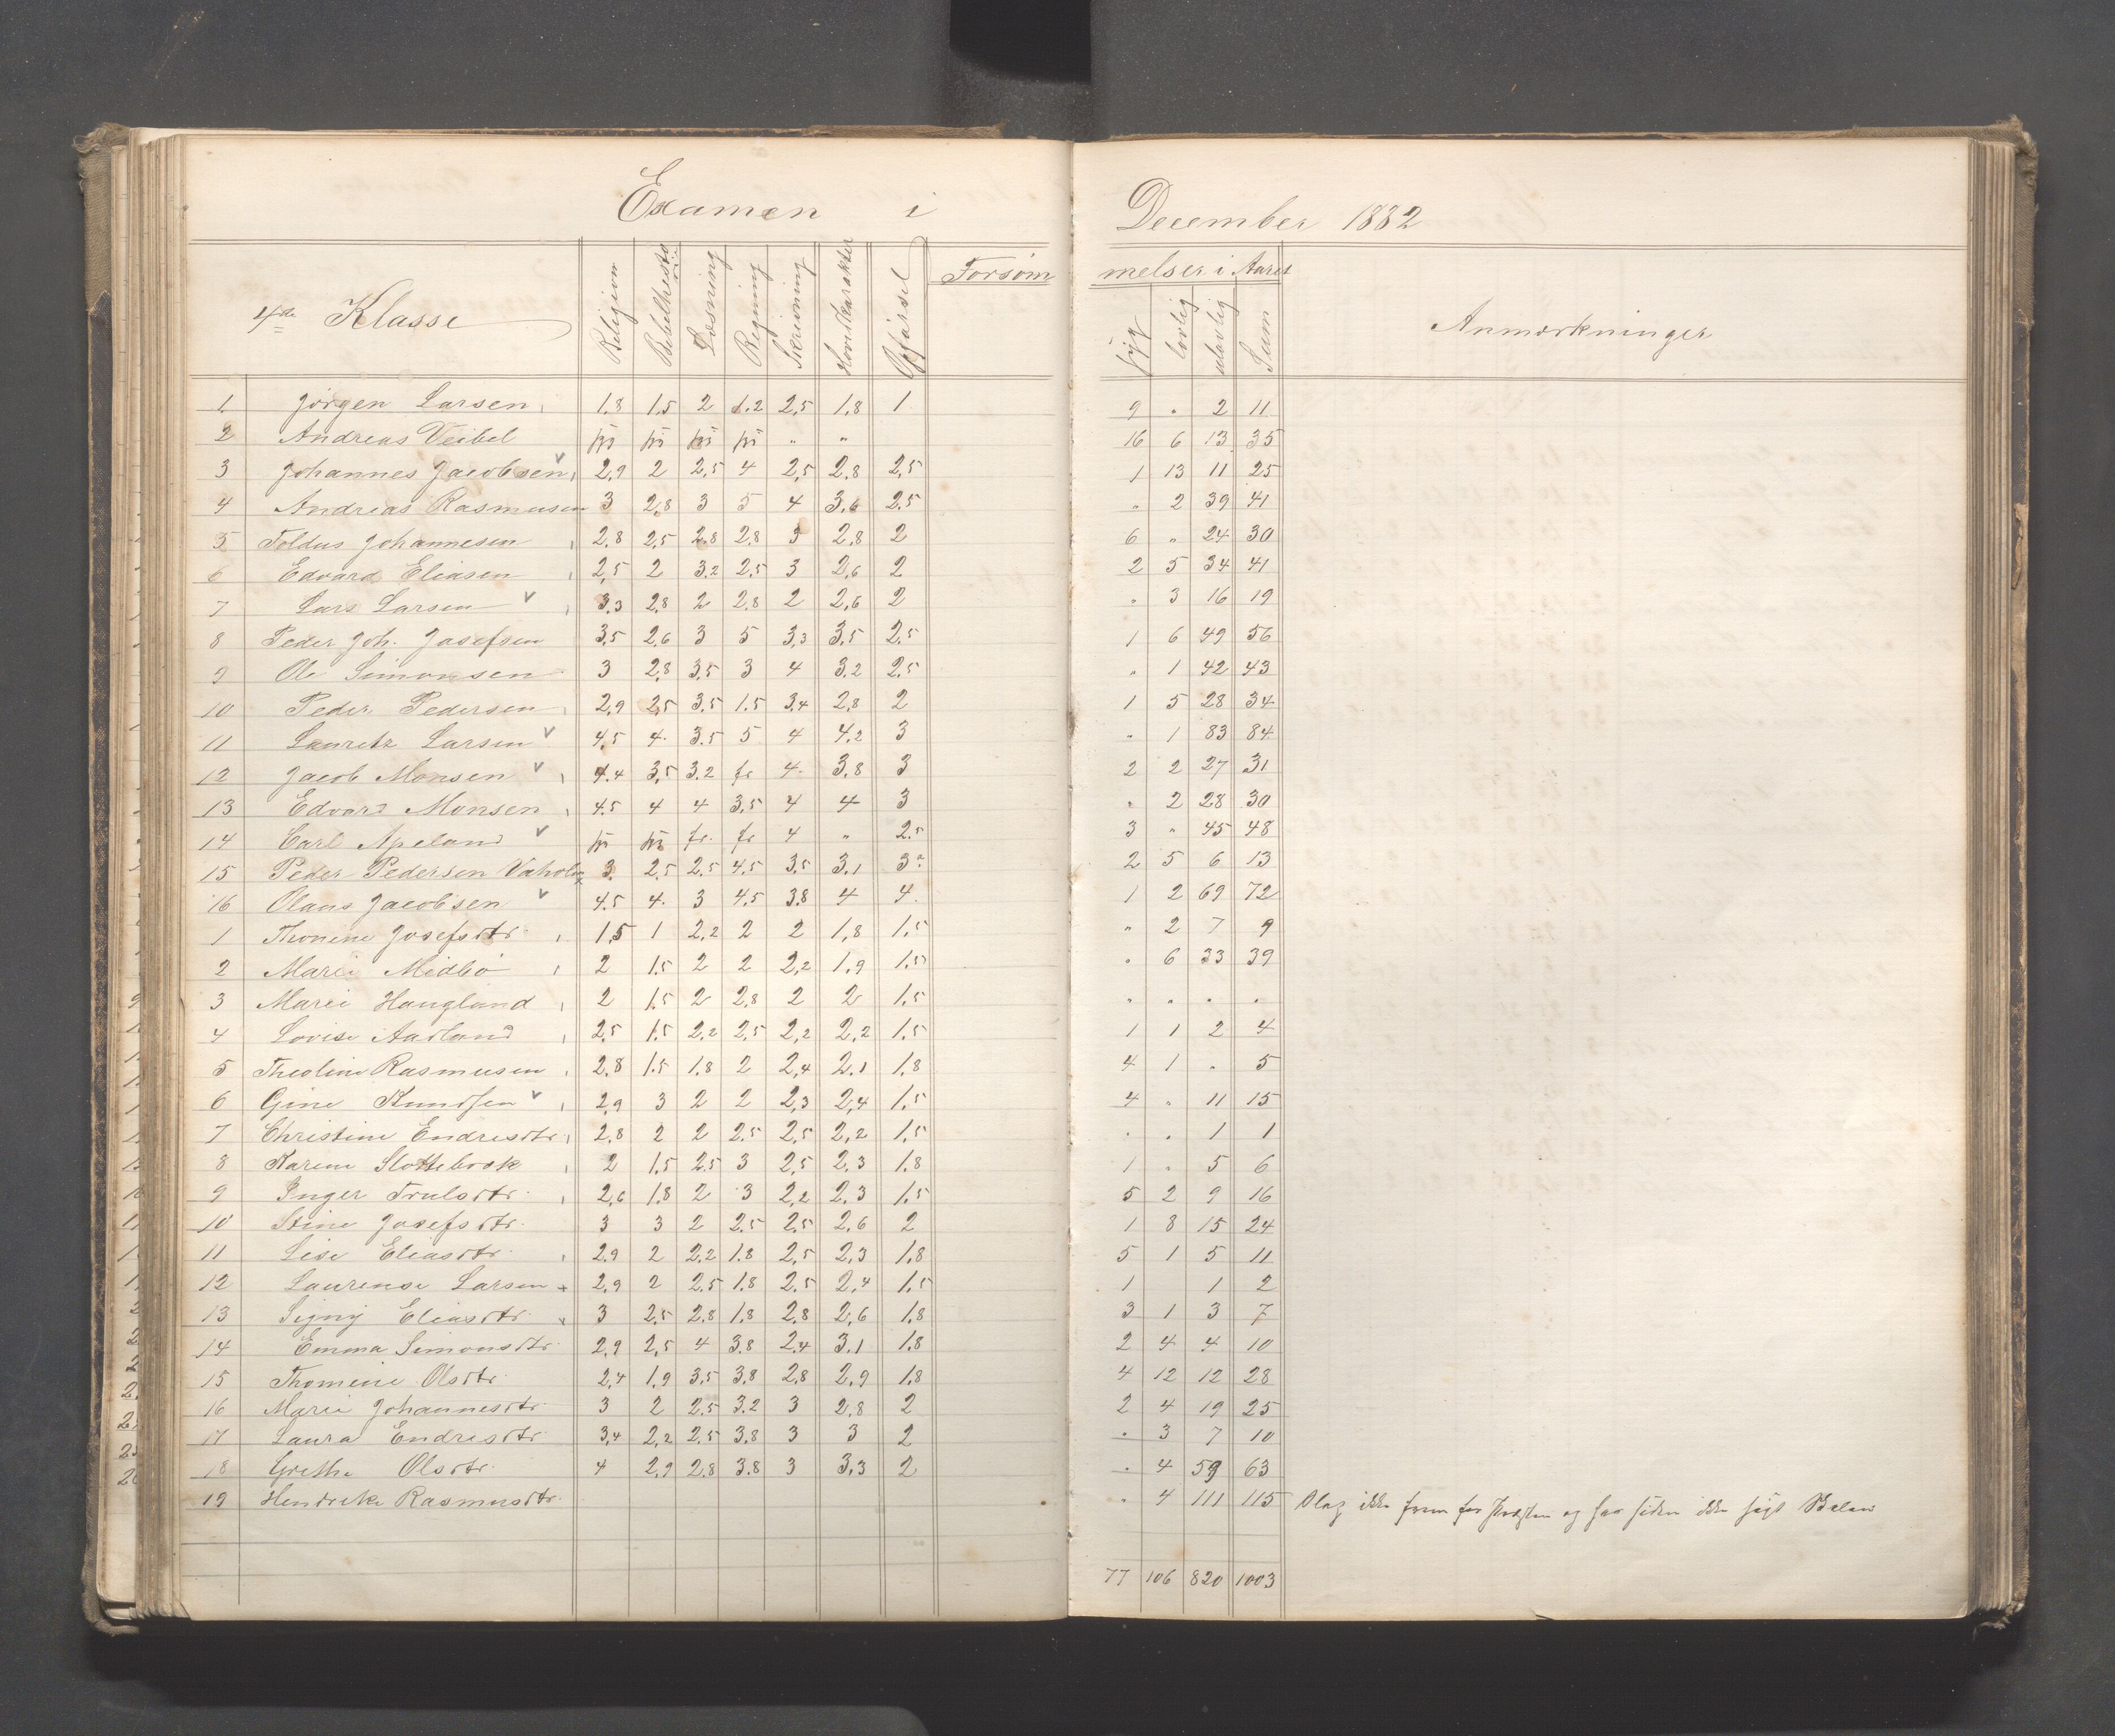 Examen i December 1882
4de Klasse Religion Bibelhistorie Læsning Regning Skrivning Hovedkarakter Opførsel Forsømmelser i Aaret
syg lovlig ulovlig Sum Anmærkninger
1 Jørgen Larsen 1.8 1.5 2 1.2 2,5 1,8 1 9 " 2 11
2 Andreas Veibel fri fri fri fri " " 16 6 13 35
3 Johannes Jacobsen v 2,9 2 2,5 4 2,5 2,8 2,5 1 13 11 25
4 Andreas Rasmusen 3 2,8 3 5 4 3,6 2,5 " 2 39 41
5 Feldus Johannesen 2,8 2,5 2,8 2,8 3 2,8 2 6 " 24 30
6 Edvard Eliasen 2,5 2 3.2 2,5 3 2,6 2 2 5 34 41
7 Lars Larsen v 3,3 2,8 2 2,8 2 2,6 2 " 3 16 19
8 Peder Joh. Josefsen 3,5 2,6 3 5 3,3 3,5 2,5 1 6 49 56
9 Ole Simonsen 3 2,8 3,5 3 4 3,2 2,5 " 1 42 43
10 Peder Pedersen 2,9 2,5 3,5 1.5 3,4 2,8 2 1 5 28 34
11 Lauretz Larsen v 4,5 4 3.5 5 4 4.2 3 " 1 83 84
12 Jacob Monsen v 4.4 3,5 3.2 fr 4 3,8 3 2 2 27 31
13 Edvard Monsen 4.5 4 4 3,5 4 4 3 " 2 28 30
14 Carl Apeland v fri fri fr. fr 4 " 2.5 3 " 45 48
15 Peder Pedersen Vaholm 3 2,5 2,5 4,5 3,5 3,1 3 2 5 6 13
16 Olaus Jacobsen v 4.5 4 3 4,5 3,8 4 4 1 2 69 72
1 Thonine Josefsdtr. 1,5 1 2,2 2 2 1,8 1,5 " 2 7 9
2 Marie Midbø 2 1.5 2 2 2,2 1,9 1,5 " 6 33 39
3 Marie Haugland 2 1.5 2 2,8 2 2 1,5 " " " "
4 Lovise Aarland 2,5 1.5 2,2 2,5 2,2 2,2 1,5 1 1 2 4
5 Theoline Rasmusen 2,8 1.5 1.8 2 2,4 2,1 1,8 4 1 " 5
6 Gine Knudsen v 2,9 3 2 2 2,3 2,4 1,5 4 " 11 15
7 Christine Endresdtr 2,8 2 2 2,5 2,5 2,2 1,5 " " 1 1
8 Karine Slottebrok 2 1,5 2.5 3 2,5 2,3 1.8 1 " 5 6
9 Inger Trulsdtr. 2,6 1.8 2 3 2,2 2,3 1.5 5 2 9 16
10 Stine Josefsdtr. 3 3 2 2.5 2.5 2.6 2 1 8 15 24
11 Lise Eliasdtr. 2.9 2 2,2 1.8 2,5 2,3 1,8 5 1 5 11
12 Laurense Larsen 2,9 2 2.5 1.8 2,5 2,4 1,5 1 1 2
13 Signy Eliasdtr. 3 2,5 2,8 1.8 2,8 2,6 1,8 3 1 3 7
14 Emma Simonsdtr. 2,9 2,5 4 3.8 2,4 3,1 1.8 2 4 4 10
15 Thomine Olsdtr. 2,4 1,9 3,5 3,8 2,8 2,9 1,8 4 12 12 28
16 Marie Johannesdtr. 3 2 2,5 3.2 3 2,8 2 2 4 19 25
17 Laura Endresdtr. 3,4 2,2 2,5 3,8 3 3 2 " 3 7 10
18 Grethe Olsdtr. 4 2,9 2,8 3.8 3 3,3 2 " 4 59 63
19 Hendrike Rasmusdtr. " 4 111 115 Slog ikke frem for Præsten og har siden ikke søgt Skolen
77 106 820 1003